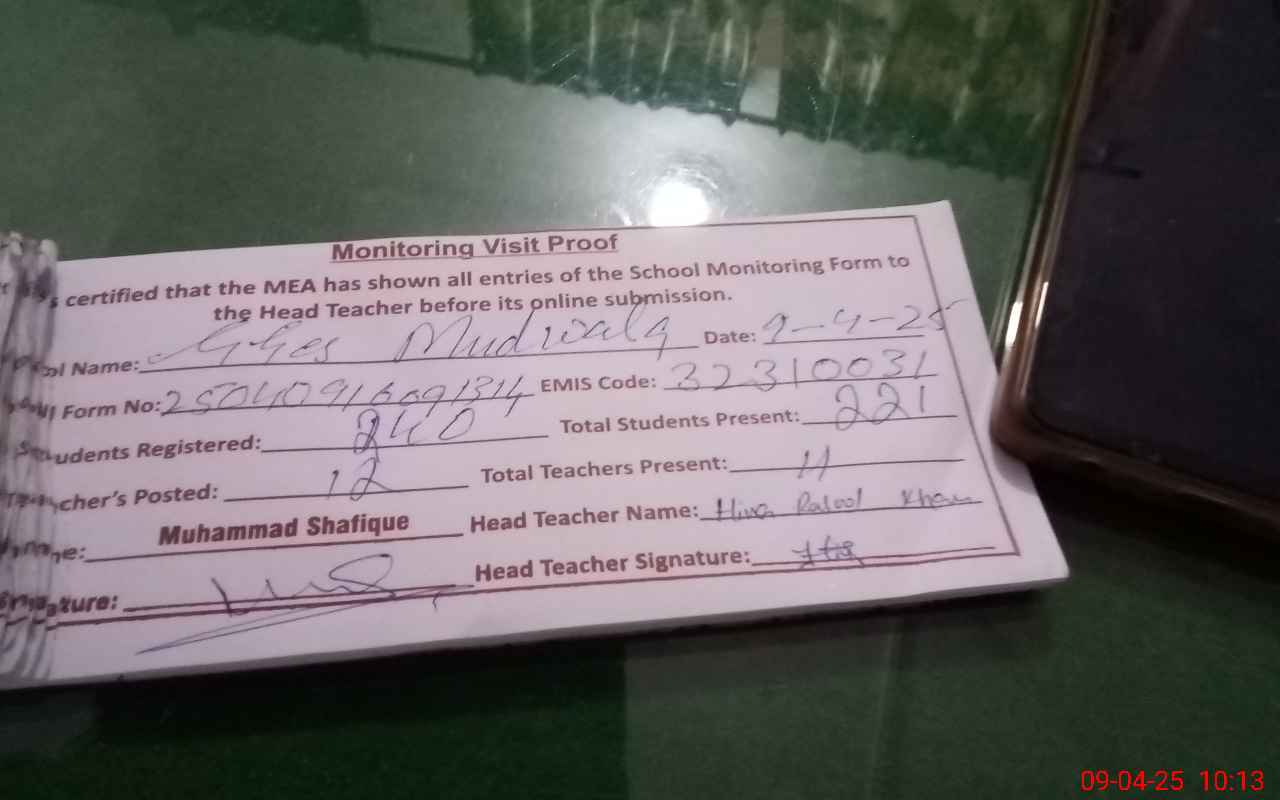 Monitoring Visit Proof
s certified that the MEA has shown all entries of the School Monitoring Form to
the Head Teacher before its online submission.
ol Name: GGES Mudwala Date: 9-4-25
Form No: EMIS Code: 32310031
udents Registered: 240 Total Students Present: 221
cher's Posted: 12 Total Teachers Present: 11
me: Muhammad Shafique Head Teacher Name: Hina Rasool Khan
ature: Head Teacher Signature:
09-04-25 10:13